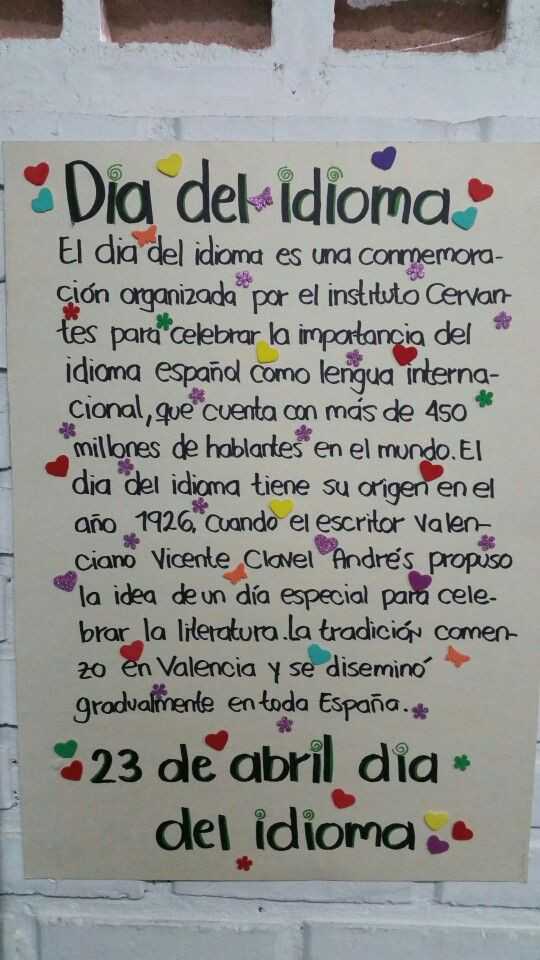 Dia del idioma
El dia del idioma es una conmemora-
ción organizada por el instituto Cervan-
tes para celebrar la importancia del
idioma español como lengua interna-
cional, que cuenta con más de 450
millones de hablantes en el mundo. El
dia del idioma tiene su origen en el
año 1926, cuando el escritor valen-
ciano Vicente Clavel Andrés propuso
la idea de un día especial para cele-
brar la literatura. La tradición comen-
zo en Valencia y se diseminó
gradualmente en toda España.
23 de abril dia
del idioma